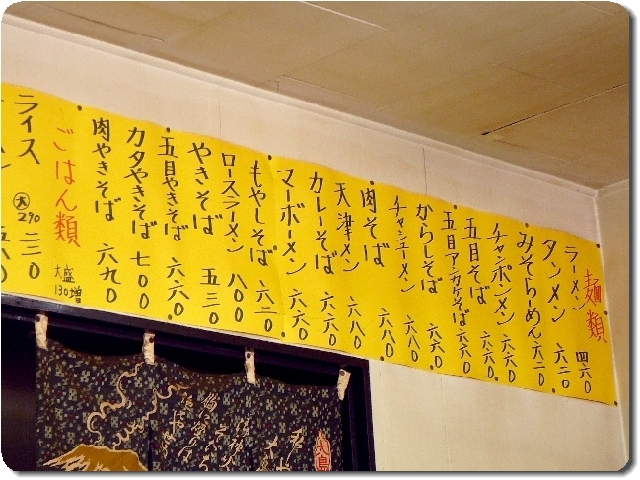 麺類
ラーメン 四六〇
タンメン 六二〇
みそらーめん 六二〇
チャンポンメン 六六〇
五目そば 六六〇
五目アンカケそば 六六〇
からしそば 六六〇
チャシューメン 六八〇
肉そば 六八〇
天津メン 六八〇
カレーそば 六六〇
マーボーメン 六六〇
もやしそば 六二〇
ロースラーメン 八〇〇
やきそば 五三〇
五目やきそば 六六〇
カタやきそば 七〇〇
肉やきそば 六九〇
大盛 130増
ごはん類
ライス 大290 二三〇